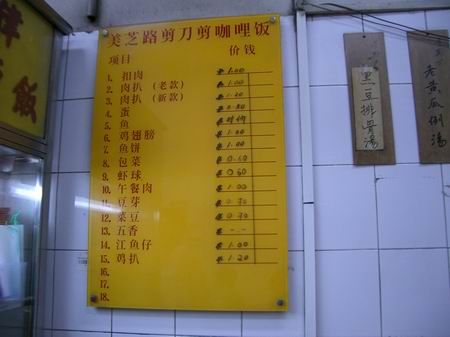 美芝路剪刀剪咖喱饭
项目 价钱
1. 扣肉 $ 1.00
2. 肉扒（老款） $ 1.00
3. 肉扒（新款） $ 1.20
4. 蛋 $ 0.80
5. 鱼 $ 时价
6. 鸡翅膀 $ 1.00
7. 鱼饼 $ 1.00
8. 包菜 $ 0.60
9. 虾球 $ 0.60
10. 午餐肉 $ 1.00
11. 豆芽 $ 0.30
12. 菜豆 $ 0.30
13. 五香 $ - . -
14. 江鱼仔 $ 1.00
15. 鸡扒 $ 1.20
16.
17.
18.
黑豆排骨汤
老黄瓜 汤
饭